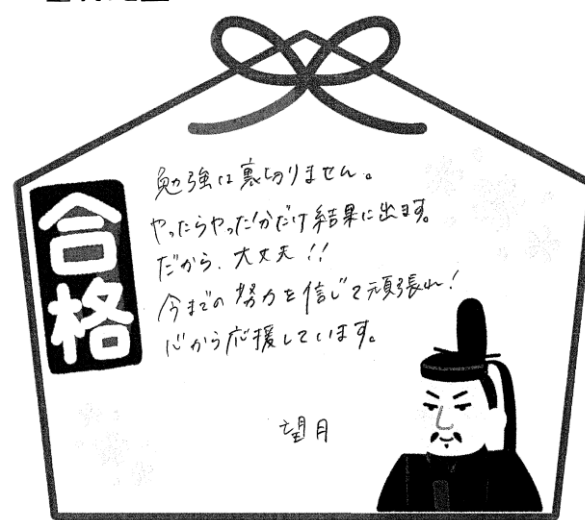 合格
勉強は裏切りません。
やったらやった分だけ結果に出ます。
だから、大丈夫!!
今までの努力を信じて頑張れ!
心から応援しています。
望月